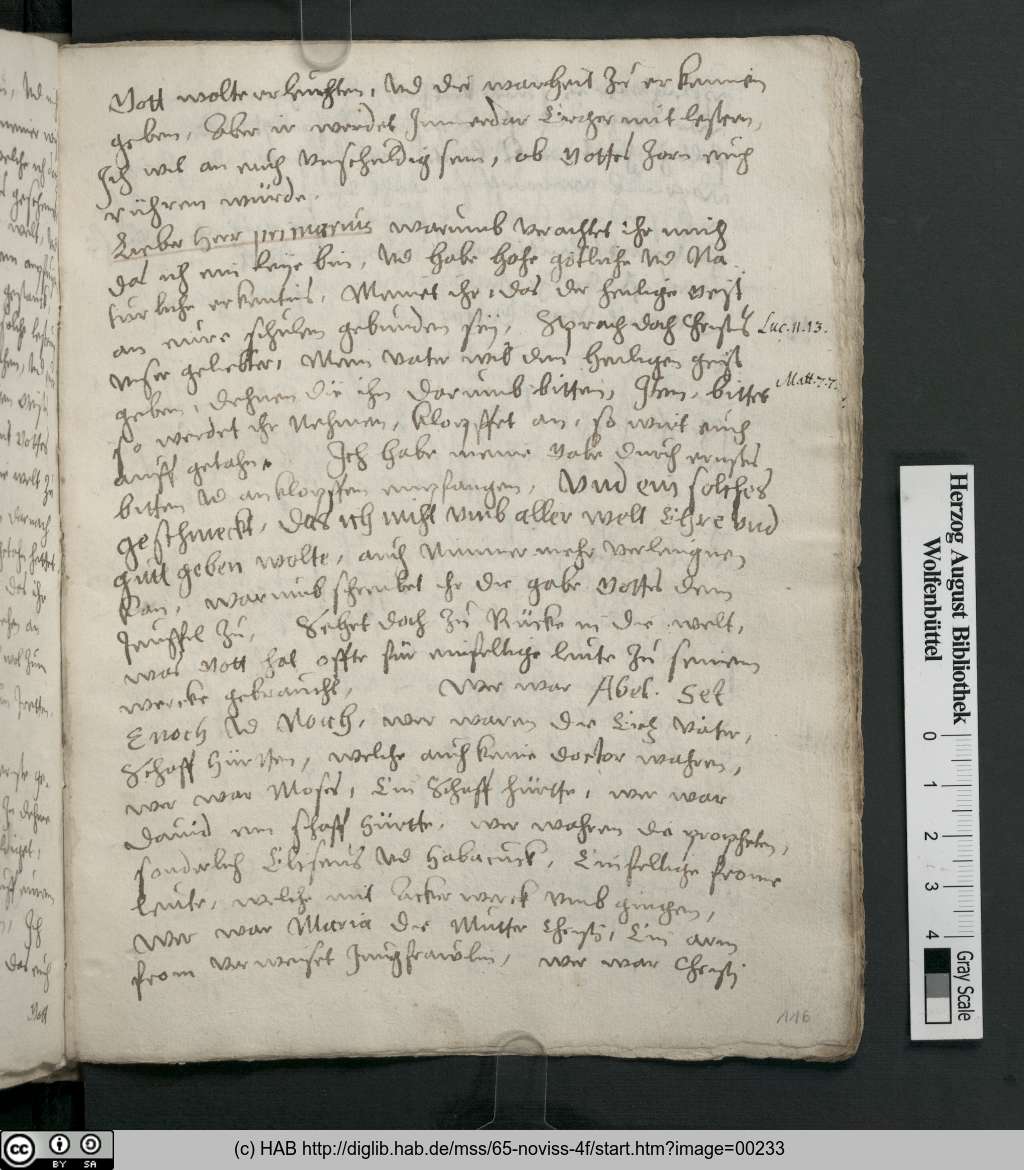 Gott wolte erleuchten, Vnd die warheit zu erkennen
geben, Aber ir werdet Jmmerdar Erger mit lestern,
Jch wil an euch vnschuldig sein, ob Gottes Zorn euch
rühren würde.
Lieber Herr primarius warumb verachtet ihr mich
das ich ein leye bin, Vnd habe hohe götliche Vnd Na
türliche erkentnis, Meinet ihr, das der heilige Geist
an eure schulen gebunden sey, Sprach doch Christus Luc. 11. 13.
vnser geliebter, Mein vater wil den heiligen geist
geben, dehnen die ihn darumb bitten, Jtem, bittet Matt. 7. 7.
so werdet ihr Nehmen, klopffet an, so wirt euch
auff getahn. Jch habe meine Gabe durch ernstes
bitten Vnd anklopffen empfangen, Vnd ein solches
geschmeckt, das ich nicht vmb aller welt Ehre vnd
gutt geben wolte, auch Nimmer mehr verleugnen
kan, warumb schreibet ihr die gabe Gottes dem
Teuffel zu, Sehet doch zu Rücke in die welt,
was Gott hat offte für einfeltige leute zu seinem
wercke gebraucht, Wer war Abel. Set
Enoch Vnd Noich, wer waren die Ertz Väter,
Schaff Hürtten, welche auch keine doctor wahren,
wer war Moses, Ein Schaff hürtte, wer war
David ein schaff Hürtte, wer wahren die propheten,
sonderlich Eliseus Vnd Habacuck, Einfeltige frome
leute, welche mit Acker werck vmb gingen,
Wer war Maria die Mutter Christi, Ein arm
from verweiset Jungfrawlin, wer war Christi
116
Herzog August Bibliothek
Wolfenbüttel
0 1 2 3 4
Gray Scale
cc BY SA
(c) HAB http://diglib.hab.de/mss/65-noviss-4f/start.htm?image=00233